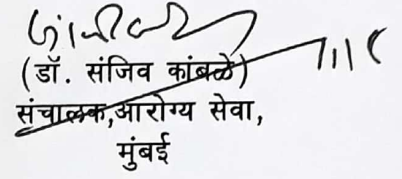 (डॉ. संजिव कांबळे)
संचालक,आरोग्य सेवा,
मुंबई